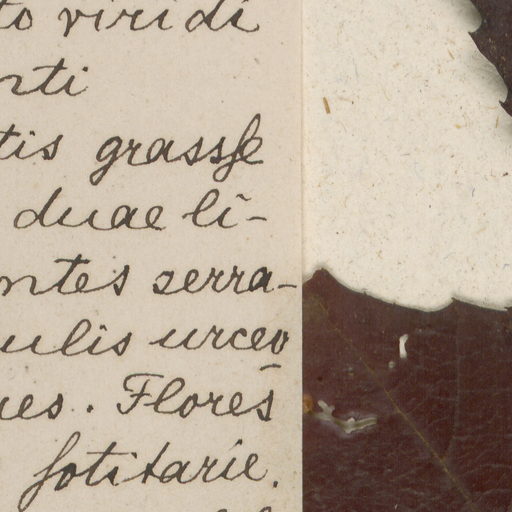 to viridi
nti
tis grasse
duae li-
ntes serra-
ulis urceo
es. Flores
solitarie.